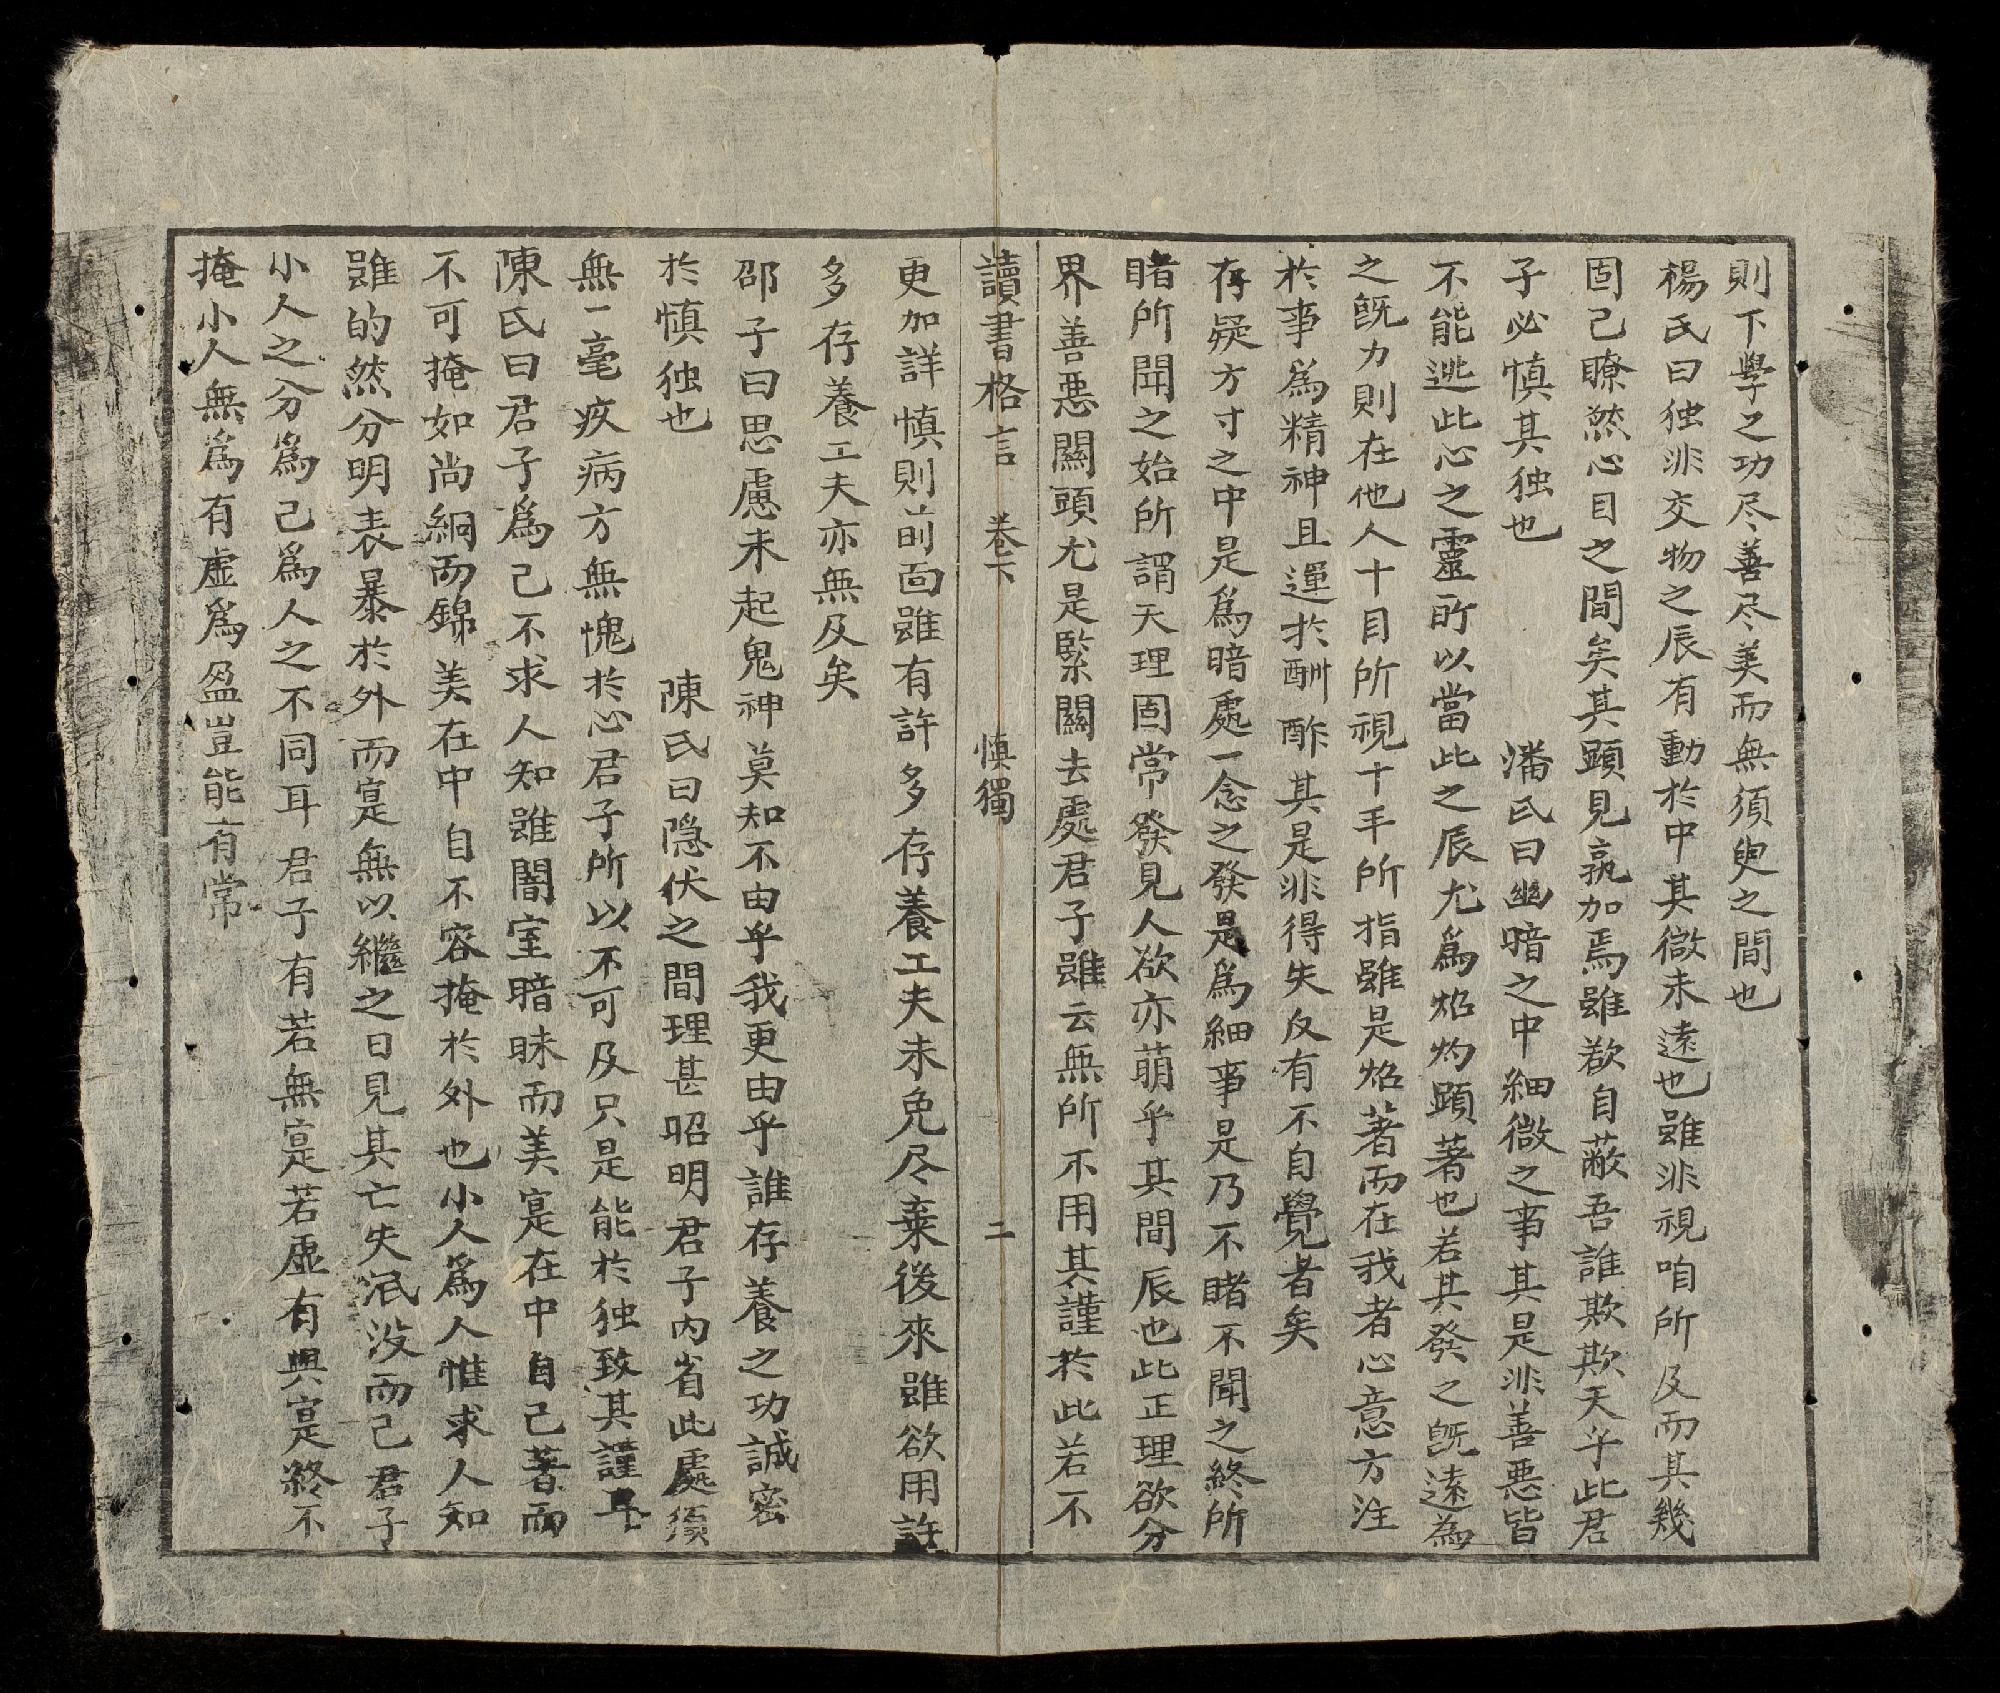 則下學之功尽善尽美而無須臾之間也
楊氏曰独非交物之辰有動於中其微未遠也雖非視咱所及而其幾
固已瞭然心目之間矣其顕見孰加焉雖欲自蔽吾誰欺欺天乎此君
子必慎其独也　潘氏曰幽暗之中細微之事其是非善悪皆
不能逃此心之靈所以當此之辰尤為炤灼顕著也若其發之既遠為
之既力則在他人十目所視十手所指雖是炤著而在我者心意方注
於事為精神且運於酬酢其是非得失反有不自覺者矣
存疑方寸之中是為暗處一念之發是為細事是乃不睹不聞之終所
睹所聞之始所謂天理固常發見人欲亦萌乎其間辰也此正理欲分
界善悪關頭尤是緊關去處君子雖云無所不用其謹於此若不
讀書格言　卷下　慎獨　二
更加詳慎則前面雖有許多存養工夫未免尽棄後來雖欲用許
多存養工夫亦無及矣
邵子曰思慮未起鬼神莫知不由乎我更由乎誰存養之功誠密
於慎独也　陳氏曰隐伏之間理甚昭明君子内省此處須
無一毫疚病方無愧於心君子所以不可及只是能於独致其謹耳
陳氏曰君子為己不求人知雖闇室暗昧而美寔在中自己著而
不可掩如尚絅而錦美在中自不容掩於外也小人為人惟求人知
雖的然分明表暴於外而寔無以繼之日見其亡失泯没而已君子
小人之分為己為人之不同耳君子有若無寔若虚有與寔終不
掩小人無為有虚為盈豈能有常